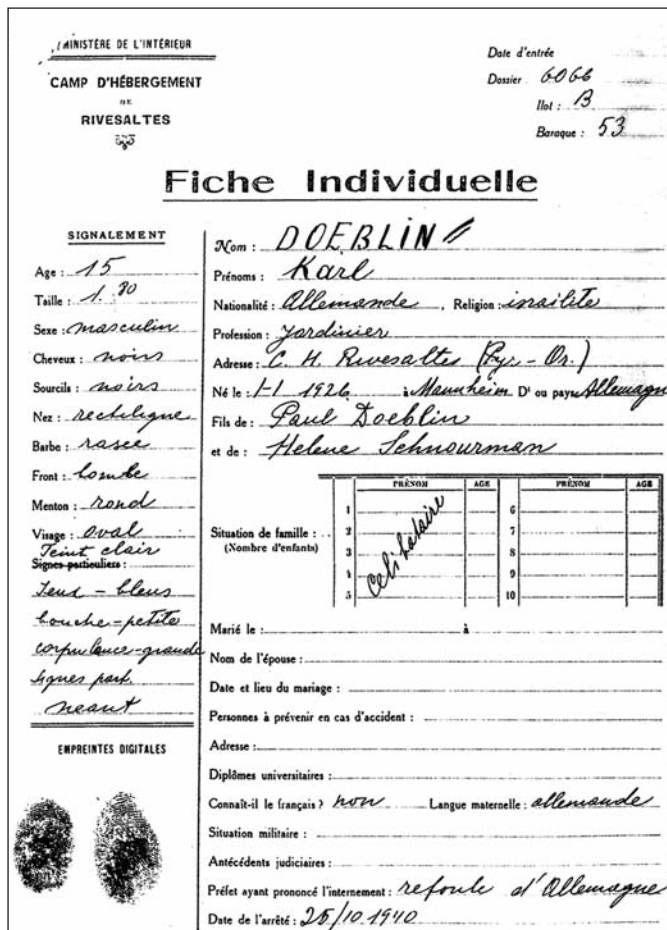 MINISTÈRE DE L'INTÉRIEUR
CAMP D'HÉBERGEMENT
DE
RIVESALTES
Date d'entrée
Dossier 6066
Ilot : B
Baraque : 53
Fiche Individuelle
SIGNALEMENT
Age : 15
Taille : 1.80
Sexe : masculin
Cheveux : noirs
Sourcils : noirs
Nez : rectiligne
Barbe : rasée
Front : bombé
Menton : rond
Visage : oval
Teint clair
Signes particuliers :
Yeux - bleus
bouche - petite
corpulence - grande
signes part.
neant
EMPREINTES DIGITALES
Nom : DOEBLIN
Prénoms : Karl
Nationalité : Allemande , Religion : israilite
Profession : Jardinier
Adresse : C. H. Rivesaltes (Pyr - Or.)
Né le : 1-1 1926 à Mannheim Dt ou pays Allemagne
Fils de : Paul Doeblin
et de : Helene Schnourman
Situation de famille :
(Nombre d'enfants)
PRÉNOM AGE PRÉNOM AGE
1 6
2 7
3 8
4 9
5 10
celibataire
Marié le : à
Nom de l'épouse :
Date et lieu du mariage :
Personnes à prévenir en cas d'accident :
Adresse :
Diplômes universitaires :
Connaît-il le français ? non Langue maternelle : allemande
Situation militaire :
Antécédents judiciaires :
Préfet ayant prononcé l'internement : refoule d'Allemagne
Date de l'arrêté : 25/10 1940